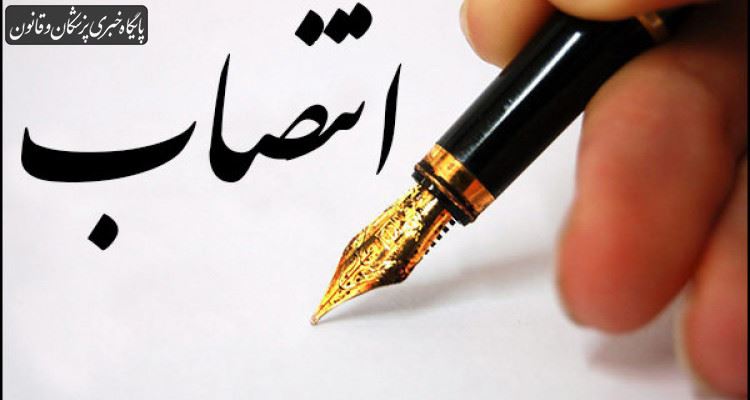 پایگاه خبری پزشکان و قانون
انتصاب